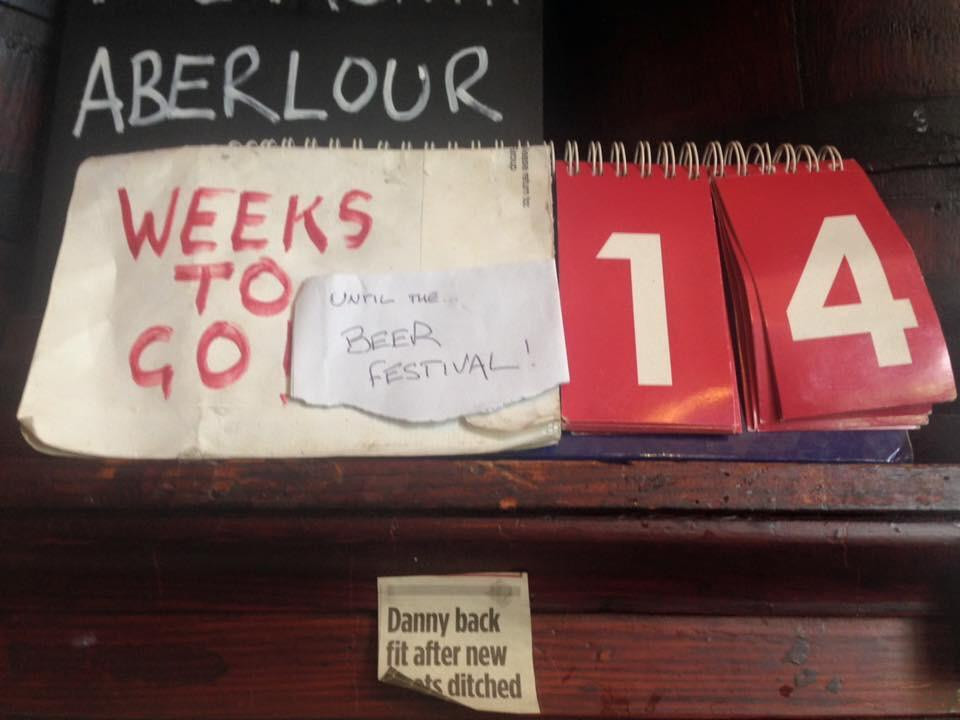 ABERLOUR
WEEKS
TO
GO
UNTIL THE...
BEER
FESTIVAL!
14
Danny back
fit after new
ditched